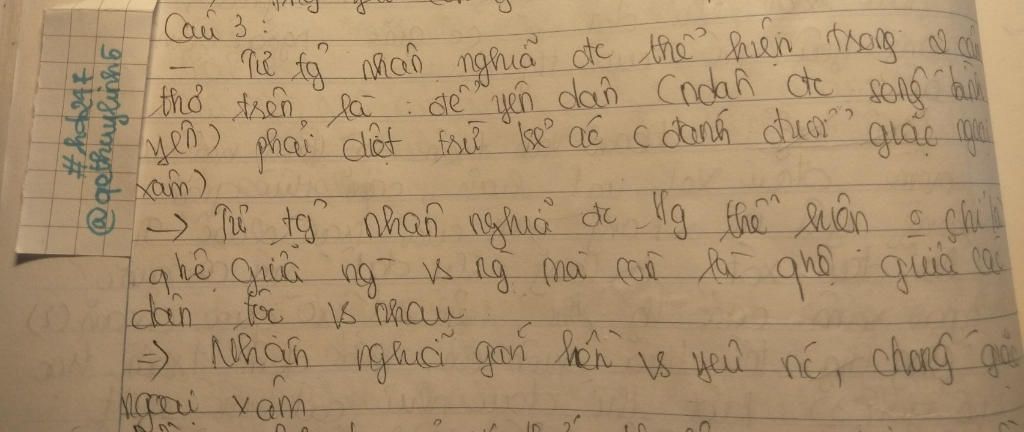 Câu 3:
- Tư tg nhân nghĩa đc thể hiện trong 2 câu
thơ trên là: để yên dân (ndân đc sống bình
yên) phải diệt trừ kẻ ác (đánh đuổi giặc ngoại
xâm)
→ Tư tg nhân nghĩa đc thể hiện chỉ là
qhệ giữa ng vs ng mà còn là qhệ giữa các
dân tộc vs nhau
⇒ Nhân nghĩa gắn liền vs yêu nc, chống giặc
ngoại xâm
#hob247
@apthuylinh5